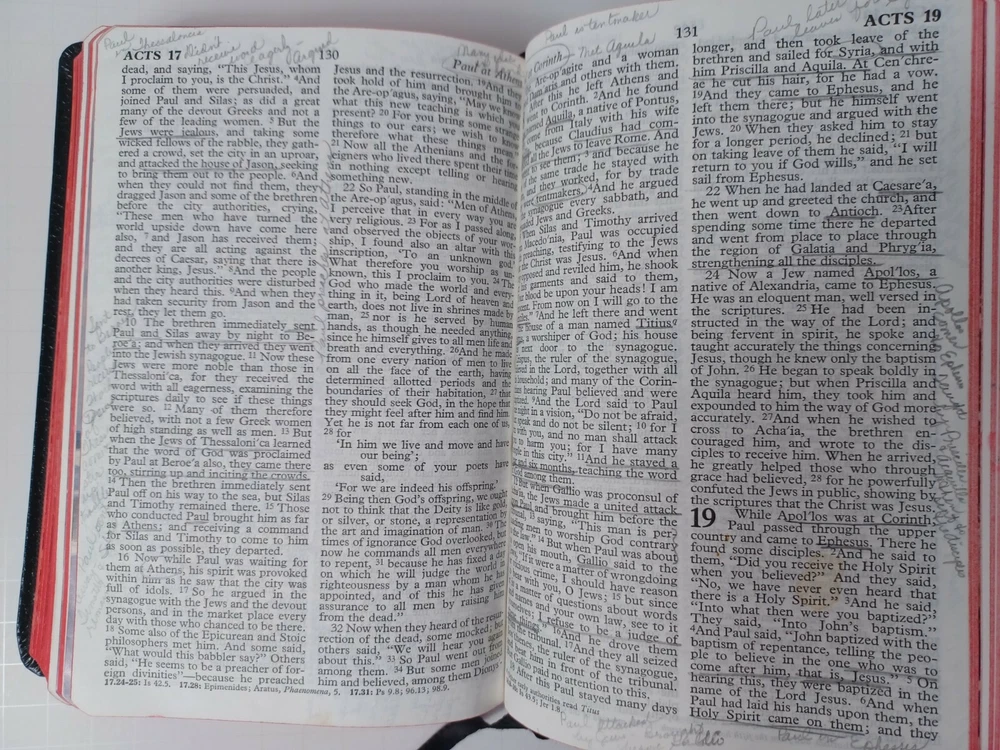 Paul
in Thessalonica
Didn't
receive
ACTS 17
130
Paul at Athens
dead, and saying, "This Jesus, whom
I proclaim to you, is the Christ." ⁴And
some of them were persuaded, and
joined Paul and Silas; as did a great
many of the devout Greeks and not a
few of the leading women. ⁵ But the
Jews were jealous, and taking some
wicked fellows of the rabble, they gath-
ered a crowd, set the city in an uproar,
and attacked the house of Jason, seeking
to bring them out to the people. ⁶And
when they could not find them, they
dragged Jason and some of the brethren
before the city authorities, crying,
"These men who have turned the
world upside down have come here
also, ⁷ and Jason has received them;
and they are all acting against the
decrees of Caesar, saying that there is
another king, Jesus." ⁸And the people
and the city authorities were disturbed
when they heard this. ⁹And when they
had taken security from Jason and the
rest, they let them go.
10 The brethren immediately sent
Paul and Silas away by night to Be-
roe'a; and when they arrived they went
into the Jewish synagogue. ¹¹ Now these
Jews were more noble than those in
Thessaloni'ca, for they received the
word with all eagerness, examining the
scriptures daily to see if these things
were so. ¹² Many of them therefore
believed, with not a few Greek women
of high standing as well as men. ¹³ But
when the Jews of Thessaloni'ca learned
that the word of God was proclaimed
by Paul at Beroe'a also, they came there
too, stirring up and inciting the crowds.
¹⁴ Then the brethren immediately sent
Paul off on his way to the sea, but Silas
and Timothy remained there. ¹⁵ Those
who conducted Paul brought him as far
as Athens; and receiving a command
for Silas and Timothy to come to him
as soon as possible, they departed.
16 Now while Paul was waiting for
them at Athens, his spirit was provoked
within him as he saw that the city was
full of idols. ¹⁷ So he argued in the
synagogue with the Jews and the devout
persons, and in the market place every
day with those who chanced to be there.
¹⁸ Some also of the Epicurean and Stoic
philosophers met him. And some said,
"What would this babbler say?" Others
said, "He seems to be a preacher of for-
eign divinities"—because he preached
Jesus and the resurrection. ¹⁹And they
took hold of him and brought him to
the Are-op'agus, saying, "May we know
what this new teaching is which you
present? ²⁰ For you bring some strange
things to our ears; we wish to know
therefore what these things mean."
²¹ Now all the Athenians and the for-
eigners who lived there spent their time
in nothing except telling or hearing
something new.
22 So Paul, standing in the middle of
the Are-op'agus, said: "Men of Athens,
I perceive that in every way you are
very religious. ²³ For as I passed along,
and observed the objects of your wor-
ship, I found also an altar with this
inscription, 'To an unknown god.'
What therefore you worship as un-
known, this I proclaim to you. ²⁴ The
God who made the world and every-
thing in it, being Lord of heaven and
earth, does not live in shrines made by
man, ²⁵ nor is he served by human
hands, as though he needed anything,
since he himself gives to all men life and
breath and everything. ²⁶And he made
from one every nation of men to live
on all the face of the earth, having
determined allotted periods and the
boundaries of their habitation, ²⁷ that
they should seek God, in the hope that
they might feel after him and find him.
Yet he is not far from each one of us,
²⁸ for
'In him we live and move and have
our being';
as even some of your poets have
said,
'For we are indeed his offspring.'
²⁹ Being then God's offspring, we ought
not to think that the Deity is like gold,
or silver, or stone, a representation by
the art and imagination of man. ³⁰ The
times of ignorance God overlooked, but
now he commands all men everywhere
to repent, ³¹ because he has fixed a day
on which he will judge the world in
righteousness by a man whom he has
appointed, and of this he has given
assurance to all men by raising him
from the dead."
32 Now when they heard of the resur-
rection of the dead, some mocked; but
others said, "We will hear you again
about this." ³³ So Paul went out from
among them. ³⁴ But some men joined
him and believed, among them Dionys-
17.24-25: Is 42.5. 17.28: Epimenides; Aratus, Phaenomena, 5. 17.31: Ps 9.8; 96.13; 98.9.
Paul in tentmaker
Met Aquila
Paul later
leaves
in Corinth
131
ACTS 19
Are-op'agite and a woman
and others with them.
this he left Athens and
to Corinth. ²And he found
named Aquila, a native of Pontus,
come from Italy with his wife
because Claudius had com-
all the Jews to leave Rome. And
to see them; ³ and because he
the same trade he stayed with
and they worked, for by trade
were tentmakers. ⁴And he argued
synagogue every sabbath, and
Jews and Greeks.
When Silas and Timothy arrived
Macedo'nia, Paul was occupied
preaching, testifying to the Jews
the Christ was Jesus. ⁶And when
opposed and reviled him, he shook
his garments and said to them,
blood be upon your heads! I am
From now on I will go to the
⁷And he left there and went
house of a man named Titius
a worshiper of God; his house
next door to the synagogue.
the ruler of the synagogue,
believed in the Lord, together with all
household; and many of the Corin-
hearing Paul believed and were
⁹And the Lord said to Paul
night in a vision, "Do not be afraid,
speak and do not be silent; ¹⁰ for I
with you, and no man shall attack
to harm you; for I have many
in this city." ¹¹And he stayed a
and six months, teaching the word
God among them.
But when Gallio was proconsul of
the Jews made a united attack
Paul and brought him before the
saying, "This man is per-
men to worship God contrary
law." ¹⁴ But when Paul was about
his mouth, Gallio said to the
"If it were a matter of wrongdoing
vicious crime, I should have reason
bear with you, O Jews; ¹⁵ but since
a matter of questions about words
names and your own law, see to it
I refuse to be a judge of
things." ¹⁶And he drove them
the tribunal. ¹⁷And they all seized
the ruler of the synagogue,
beat him in front of the tribunal.
paid no attention to this.
After this Paul stayed many days
authorities read Titus
longer, and then took leave of the
brethren and sailed for Syria, and with
him Priscilla and Aquila. At Cen'chre-
ae he cut his hair, for he had a vow.
¹⁹And they came to Ephesus, and he
left them there; but he himself went
into the synagogue and argued with the
Jews. ²⁰ When they asked him to stay
for a longer period, he declined; ²¹ but
on taking leave of them he said, "I will
return to you if God wills," and he set
sail from Ephesus.
22 When he had landed at Caesare'a,
he went up and greeted the church, and
then went down to Antioch. ²³After
spending some time there he departed
and went from place to place through
the region of Galatia and Phryg'ia,
strengthening all the disciples.
24 Now a Jew named Apol'los, a
native of Alexandria, came to Ephesus.
He was an eloquent man, well versed in
the scriptures. ²⁵ He had been in-
structed in the way of the Lord; and
being fervent in spirit, he spoke and
taught accurately the things concerning
Jesus, though he knew only the baptism
of John. ²⁶ He began to speak boldly in
the synagogue; but when Priscilla and
Aquila heard him, they took him and
expounded to him the way of God more
accurately. ²⁷And when he wished to
cross to Acha'ia, the brethren en-
couraged him, and wrote to the dis-
ciples to receive him. When he arrived,
he greatly helped those who through
grace had believed, ²⁸ for he powerfully
confuted the Jews in public, showing by
the scriptures that the Christ was Jesus.
19 While Apol'los was at Corinth,
Paul passed through the upper
country and came to Ephesus. There he
found some disciples. ²And he said to
them, "Did you receive the Holy Spirit
when you believed?" And they said,
"No, we have never even heard that
there is a Holy Spirit." ³And he said,
"Into what then were you baptized?"
They said, "Into John's baptism."
⁴And Paul said, "John baptized with the
baptism of repentance, telling the peo-
ple to believe in the one who was to
come after him, that is, Jesus." ⁵ On
hearing this, they were baptized in the
name of the Lord Jesus. ⁶And when
Paul had laid his hands upon them, the
Holy Spirit came on them; and they
Apollos
Paul attacked